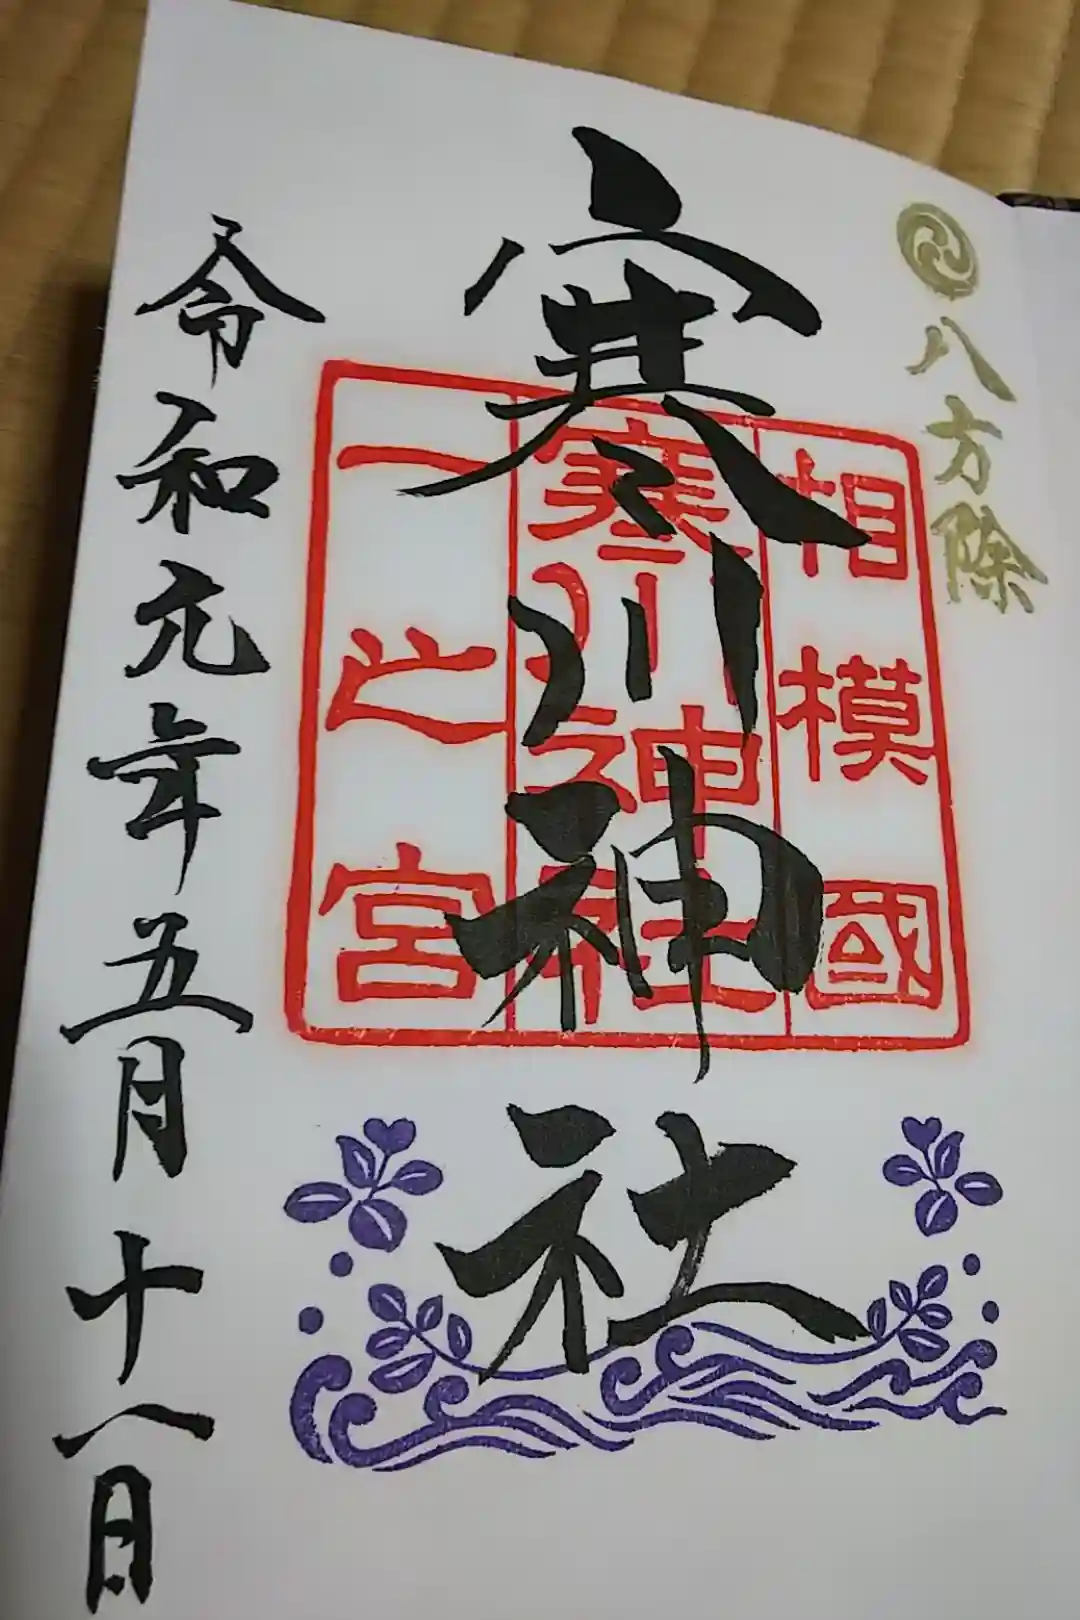 八方除
寒川神社
相模國
寒川神社
一之宮
令和元年五月十八日